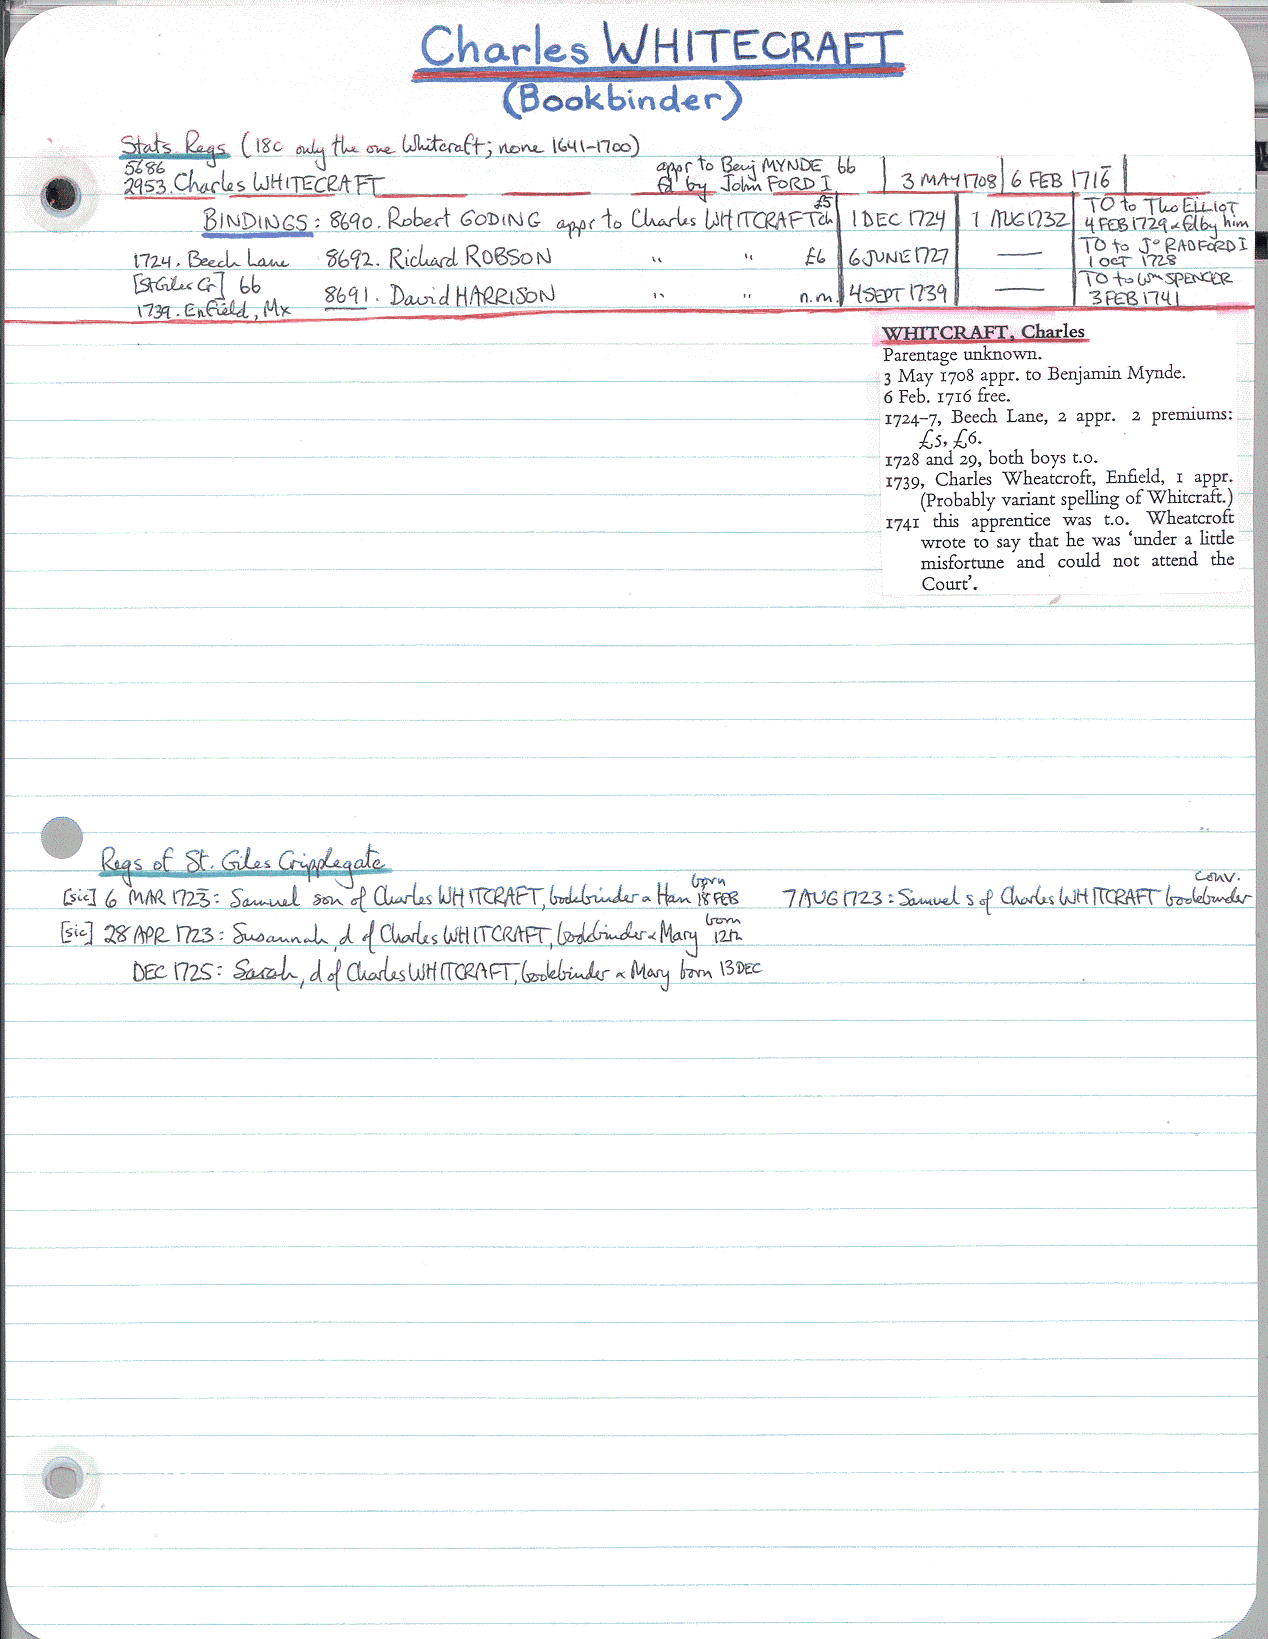 Charles WHITECRAFT
(Bookbinder)
Stats Regs (18C only the one Whitcraft; none 1641-1700)
5686
2953. Charles WHITECRAFT appr to Benj MYNDE bb
fd by John FORD I 3 MAY 1708 6 FEB 1716
BINDINGS: 8690. Robert GODING appr to Charles WHITCRAFT ch £5 1 DEC 1724 1 AUG 1732 TO to Tho ELLIOT
4 FEB 1729 & fd by him
1724. Beech Lane 8692. Richard ROBSON " " £6 6 JUNE 1727 — TO to Jº RADFORD I
1 OCT 1728
[St Giles Cr] bb 8691. David HARRISON " " n.m. 4 SEPT 1739 — TO to Wm SPENCER
3 FEB 1741
1739. Enfield, Mx
WHITCRAFT, Charles
Parentage unknown.
3 May 1708 appr. to Benjamin Mynde.
6 Feb. 1716 free.
1724–7, Beech Lane, 2 appr. 2 premiums:
£5, £6.
1728 and 29, both boys t.o.
1739, Charles Wheatcroft, Enfield, 1 appr.
(Probably variant spelling of Whitcraft.)
1741 this apprentice was t.o. Wheatcroft
wrote to say that he was ‘under a little
misfortune and could not attend the
Court’.
Regs of St. Giles Cripplegate
[sic] 6 MAR 1723: Samuel son of Charles WHITCRAFT, bookbinder & Han born 18 FEB 7 AUG 1723: Samuel s of Charles WHITCRAFT bookbinder conv.
[sic] 28 APR 1723: Susannah, d of Charles WHITCRAFT, bookbinder & Mary born 12th
DEC 1725: Sarah, d of Charles WHITCRAFT, bookbinder & Mary born 13 DEC